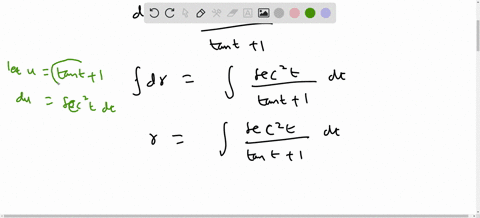 d
tant + 1
let u = tant + 1
du = sec²t dt
∫ dr = ∫ sec²t / tant + 1 dt
r = ∫ sec²t / tant + 1 dt